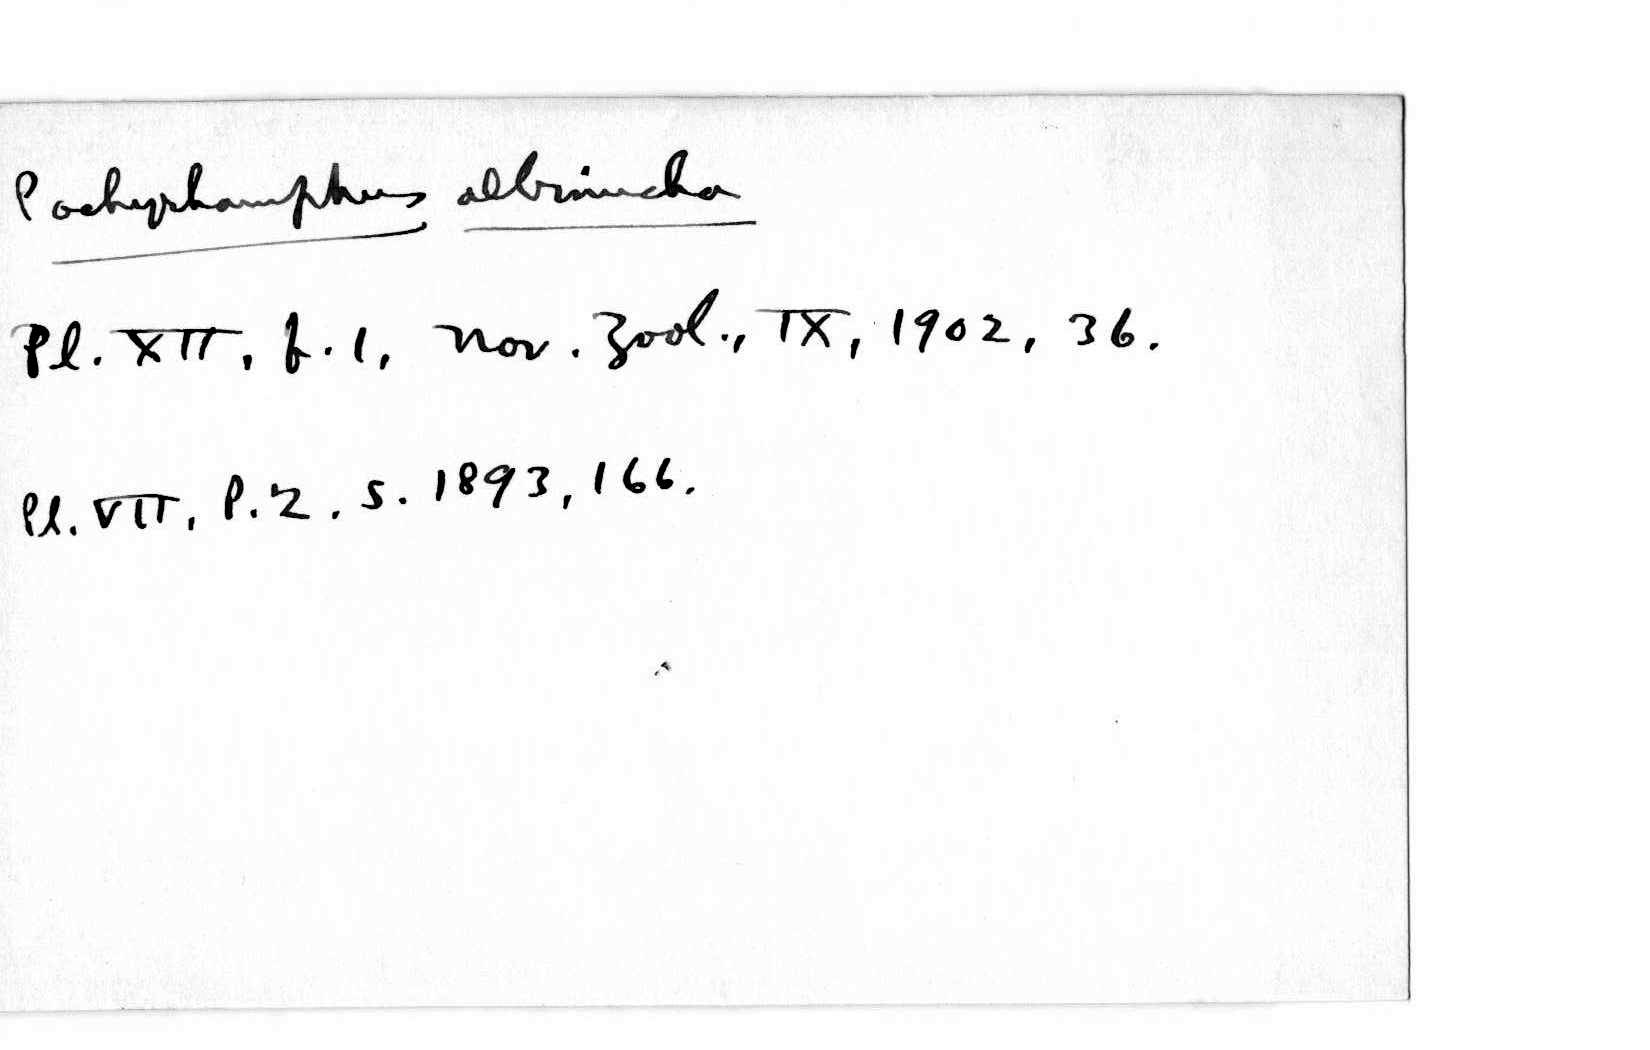 Pachyrhamphus albinucha
Pl. XII, f. 1, Nov. Zool., IX, 1902, 36.
Pl. VII, P. Z. S. 1893, 166.